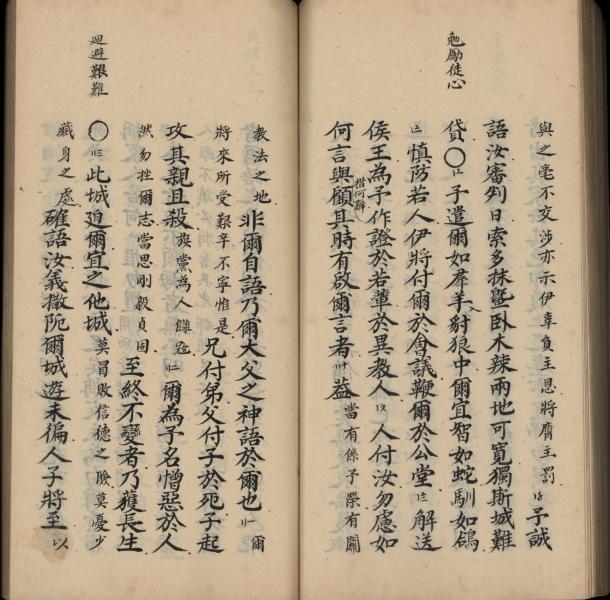 勉勵徒心
與之毫不交涉亦示伊辜負主恩將膺主罰 予誠
語汝審判日索多抹曁卧木辣兩地可寬獨斯城難
貸〇予遣爾如羣羊入豺狼中爾宜智如蛇馴如鴿
慎防若人伊將付爾於會議鞭爾於公堂 解送
侯王為予作證於若輩於異教人 人付汝勿慮如
何言與措何辭顧其時有啟爾言者 葢當有係予榮有關
迴避艱難
教法之地非爾自語乃爾大父之神語於爾也 爾
將來所受艱辛不寧惟是兄付弟父付子於死子起
攻其親且殺族黨為人讎寇 爾為予名憎惡於人
然勿挫爾志當思剛毅貞固至終不變者乃獲長生
〇此城迫爾宜之他城莫冒敗信德之險莫憂少
藏身之處確語汝義撒阨爾城遊未徧人子將至